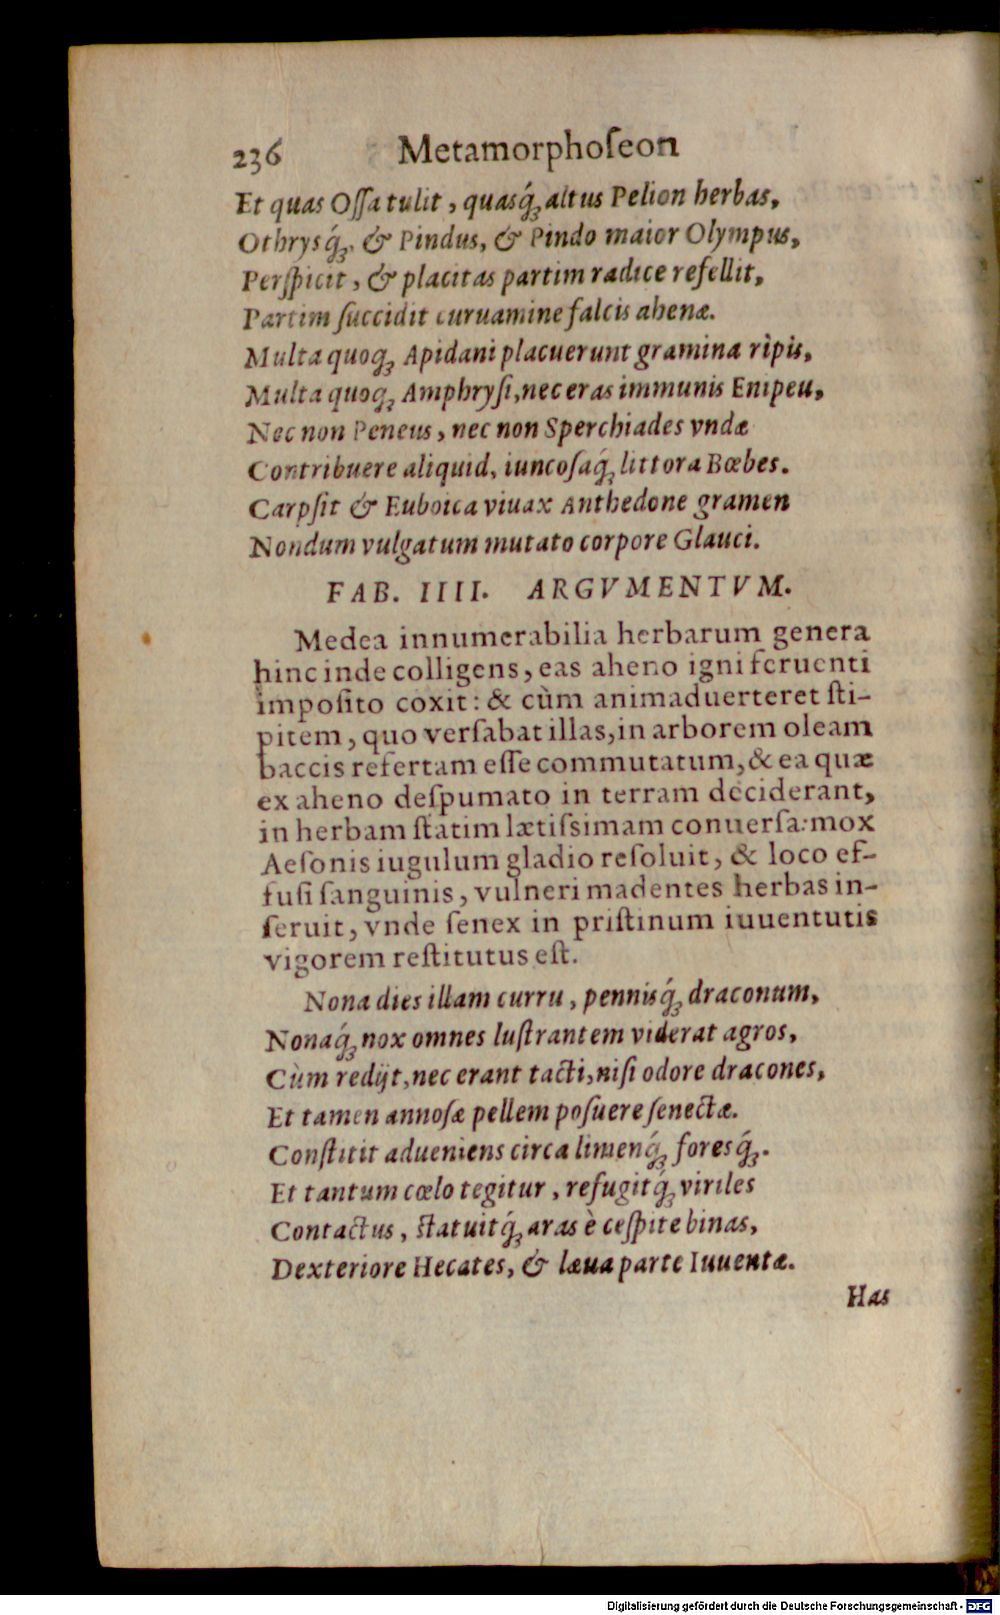 236 Metamorphoſeon
Et quas Oſſa tulit, quasq́; altus Pelion herbas,
Othrysq́;, & Pindus, & Pindo maior Olympus,
Perſpicit, & placitas partim radice refellit,
Partim ſuccidit curuamine falcis ahenæ.
Multa quoq; Apidani placuerunt gramina rìpis,
Multa quoq; Amphryſi, nec eras immunis Enipeu,
Nec non Peneus, nec non Sperchiades vndæ
Contribuere aliquid, iuncoſaq́; littora Bœbes.
Carpſit & Euboica viuax Anthedone gramen
Nondum vulgatum mutato corpore Glauci.
FAB. IIII. ARGVMENTVM.
Medea innumerabilia herbarum genera
hinc inde colligens, eas aheno igni feruenti
impoſito coxit: & cùm animaduerteret ſti-
pitem, quo verſabat illas, in arborem oleam
baccis refertam eſſe commutatum, & ea quæ
ex aheno deſpumato in terram deciderant,
in herbam ſtatim lætiſsimam conuerſa: mox
Aeſonis iugulum gladio reſoluit, & loco ef-
fuſi ſanguinis, vulneri madentes herbas in-
ſeruit, vnde ſenex in priſtinum iuuentutis
vigorem reſtitutus eſt.
Nona dies illam curru, pennisq́; draconum,
Nonaq́; nox omnes luſtrantem viderat agros,
Cùm redijt, nec erant tacti, niſi odore dracones,
Et tamen annoſæ pellem poſuere ſenectæ.
Conſtitit adueniens circa limenq́; foresq́;.
Et tantum cœlo tegitur, refugitq́; viriles
Contactus, ſtatuitq́; aras è ceſpite binas,
Dexteriore Hecates, & læua parte Iuuentæ.
Has
Digitalisierung gefördert durch die Deutsche Forschungsgemeinschaft - DFG